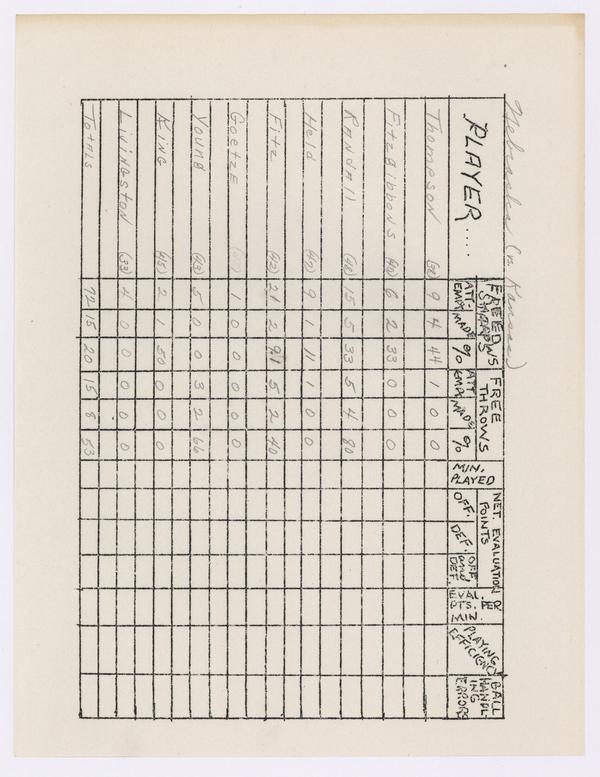 Nebraska Kansas)
PLAYER.... FREE THROWS MIN. PLAYED NET. EVALUATION POINTS EVAL. PTS. PER MIN. PLAYING EFFICIENCY BALL HANDLING ERRORS
ATTEMP. MADE % ATTEMP. MADE % OFF. DEF. OFF. and DEF.
Thompson (38) 9 4 44 1 0 0
FitzGibbons (40) 6 2 33 0 0 0
Randall (48) 15 5 33 5 4 80
Held (47) 9 1 11 1 0 0
Fitz (42) 21 2 5 2 40
Goetze 1 0 0 0 0 0
Young (43) 5 0 0 3 2 66
King (45) 2 1 50 0 0 0
Livingston (33) 4 0 0 0 0 0
Totals 72 15 20 15 8 53